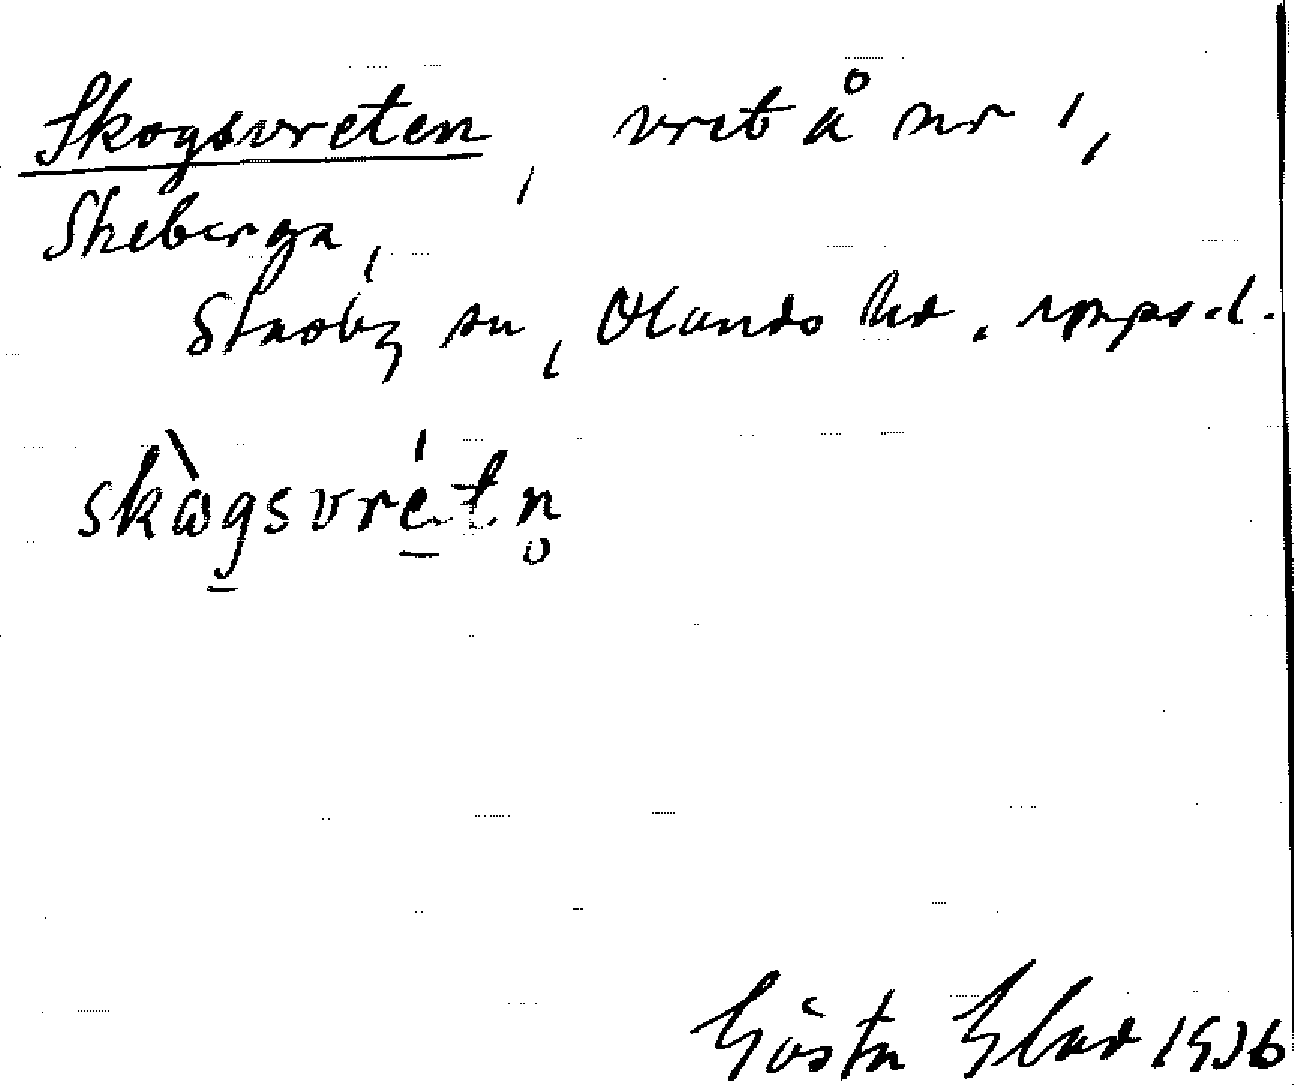 Skogsvreten, vret å nr 1,
Skeberga,
Stavby sn, Olands hd. Uppsa. l.
skògsvrétn̥
Gösta Elad 1936